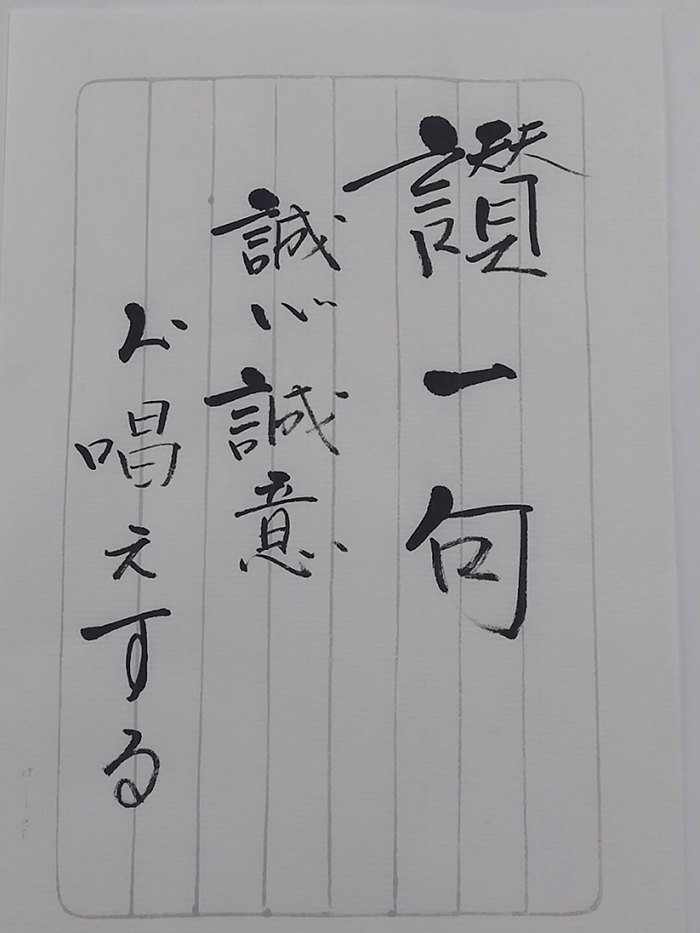 讃一句
誠心誠意
お唱えする